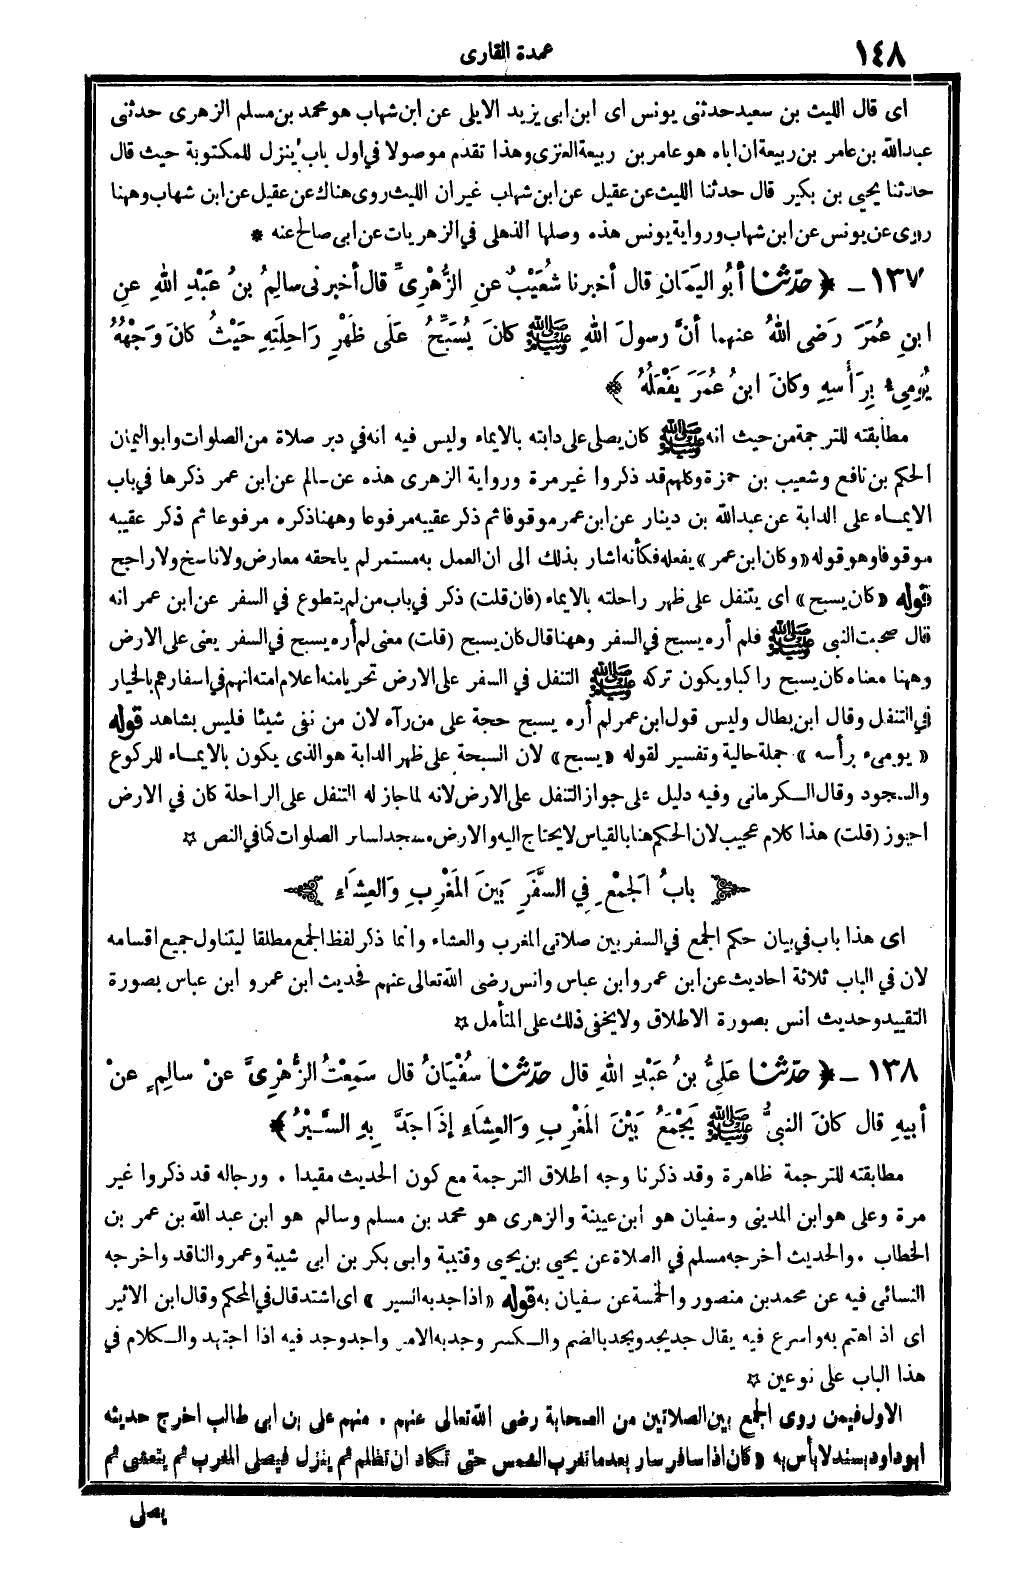 ١٤٨
عمدة القارى
اى قال الليث بن سعيد حدثنى يونس اى ابن ابى يزيد الايلى عن ابن شهاب هو محمد بن مسلم الزهرى حدثنى
عبد الله بن عامر بن ربيعة ان اباه هو عامر بن ربيعة العنزى وهذا تقدم موصولا فى اول باب ينزل للمكتوبة حيث قال
حدثنا يحيى بن بكير قال حدثنا الليث عن عقيل عن ابن شهاب غير ان الليث روى هناك عن عقيل عن ابن شهاب وههنا
روى عن يونس عن ابن شهاب ورواية يونس هذه وصلها الذهلى فى الزهريات عن ابى صالح عنه *
١٣٧ - ﴿ حَدَّثَنَا أَبُو اليَمَانِ قال أخبرنا شُعَيْبٌ عنِ الزُّهْرِىِّ قال أخبرنى سالِمُ بنُ عَبْدِ اللهِ عنِ
ابنِ عُمَرَ رَضى اللهُ عنهما أنَّ رسولَ اللهِ ﷺ كانَ يُسَبِّحُ عَلَى ظَهْرِ رَاحِلَتِهِ حَيْثُ كانَ وَجْهُهُ
يُومِىءُ بِرَأْسِهِ وكانَ ابنُ عُمَرَ يَفْعَلُهُ ﴾
مطابقته للترجمة من حيث انه ﷺ كان يصلى على دابته بالايماء وليس فيه انه فى دبر صلاة من الصلوات وابو اليمان
الحكم بن نافع وشعيب بن حمزة وكلهم قد ذكروا غير مرة ورواية الزهرى هذه عن سالم عن ابن عمر ذكرها فى باب
الايماء على الدابة عن عبد الله بن دينار عن ابن عمر موقوفا ثم ذكر عقيبه مرفوعا وههنا ذكره مرفوعا ثم ذكر عقيبه
موقوفا وهو قوله «وكان ابن عمر» يفعله فكأنه اشار بذلك الى ان العمل به مستمر لم يلحقه معارض ولا ناسخ ولا راجح
قوله «كان يسبح» اى يتنفل على ظهر راحلته بالايماء (فان قلت) ذكر فى باب من لم يتطوع فى السفر عن ابن عمر انه
قال صحبت النبى ﷺ فلم أره يسبح فى السفر وههنا قال كان يسبح (قلت) معنى لم أره يسبح فى السفر يعنى على الارض
وههنا معناه كان يسبح راكبا ويكون تركه ﷺ التنفل فى السفر على الارض تحريا منه أعلام امته انهم فى اسفارهم بالخيار
فى التنفل وقال ابن بطال وليس قول ابن عمر لم أره يسبح حجة على من رآه لان من نفى شيئا فليس بشاهد قوله
« يومىء برأسه » جملة حالية وتفسير لقوله «يسبح» لان السبحة على ظهر الدابة هو الذى يكون بالايماء للركوع
والسجود وقال الكرمانى وفيه دليل على جواز التنفل على الارض لانه لما جاز له التنفل على الراحلة كان فى الارض
اجوز (قلت) هذا كلام عجيب لان الحكم هنا بالقياس لا يحتاج اليه والارض مسجد لسائر الصلوات كما فى النص
بابُ الجَمْعِ فِي السَّفَرِ بَيْنَ المَغْرِبِ وَالعِشَاءِ
اى هذا باب فى بيان حكم الجمع فى السفر بين صلاتى المغرب والعشاء وانما ذكر لفظ الجمع مطلقا ليتناول جميع اقسامه
لان فى الباب ثلاثة احاديث عن ابن عمر وابن عباس وانس رضى الله تعالى عنهم فحديث ابن عمر و ابن عباس بصورة
التقييد وحديث أنس بصورة الاطلاق ولا يخفى ذلك على المتأمل
١٣٨ - ﴿ حَدَّثَنَا عَلِىُّ بنُ عَبْدِ اللهِ قال حَدَّثَنَا سُفْيَانُ قال سَمِعْتُ الزُّهْرِىَّ عنْ سالِمٍ عنْ
أبيهِ قال كانَ النبىُّ ﷺ يَجْمَعُ بَيْنَ المَغْرِبِ وَالعِشَاءِ إذَا جَدَّ بِهِ السَّيْرُ ﴾
مطابقته للترجمة ظاهرة وقد ذكرنا وجه اطلاق الترجمة مع كون الحديث مقيدا . ورجاله قد ذكروا غير
مرة وعلى هو ابن المدينى وسفيان هو ابن عيينة والزهرى هو محمد بن مسلم وسالم هو ابن عبد الله بن عمر بن
الخطاب . والحديث أخرجه مسلم فى الصلاة عن يحيى بن يحيى وقتيبة وابى بكر بن ابى شيبة وعمرو الناقد واخرجه
النسائى فيه عن محمد بن منصور والخمسة عن سفيان به قوله «اذا جد به السير » اى اشتد قال فى المحكم وقال ابن الاثير
اى اذ اهتم به واسرع فيه يقال جد يجد ويجد بالضم والكسر وجد به الامر واجد وجد فيه اذا اجتهد والكلام فى
هذا الباب على نوعين
الاول فيمن روى الجمع بين الصلاتين من الصحابة رضى الله تعالى عنهم . منهم على بن ابى طالب اخرج حديثه
ابو داود بسند لا بأس به «كان اذا سافر سار بعد ما تغرب الشمس حتى تكاد ان تظلم ثم ينزل فيصلى المغرب ثم يتعشى ثم
يصلى